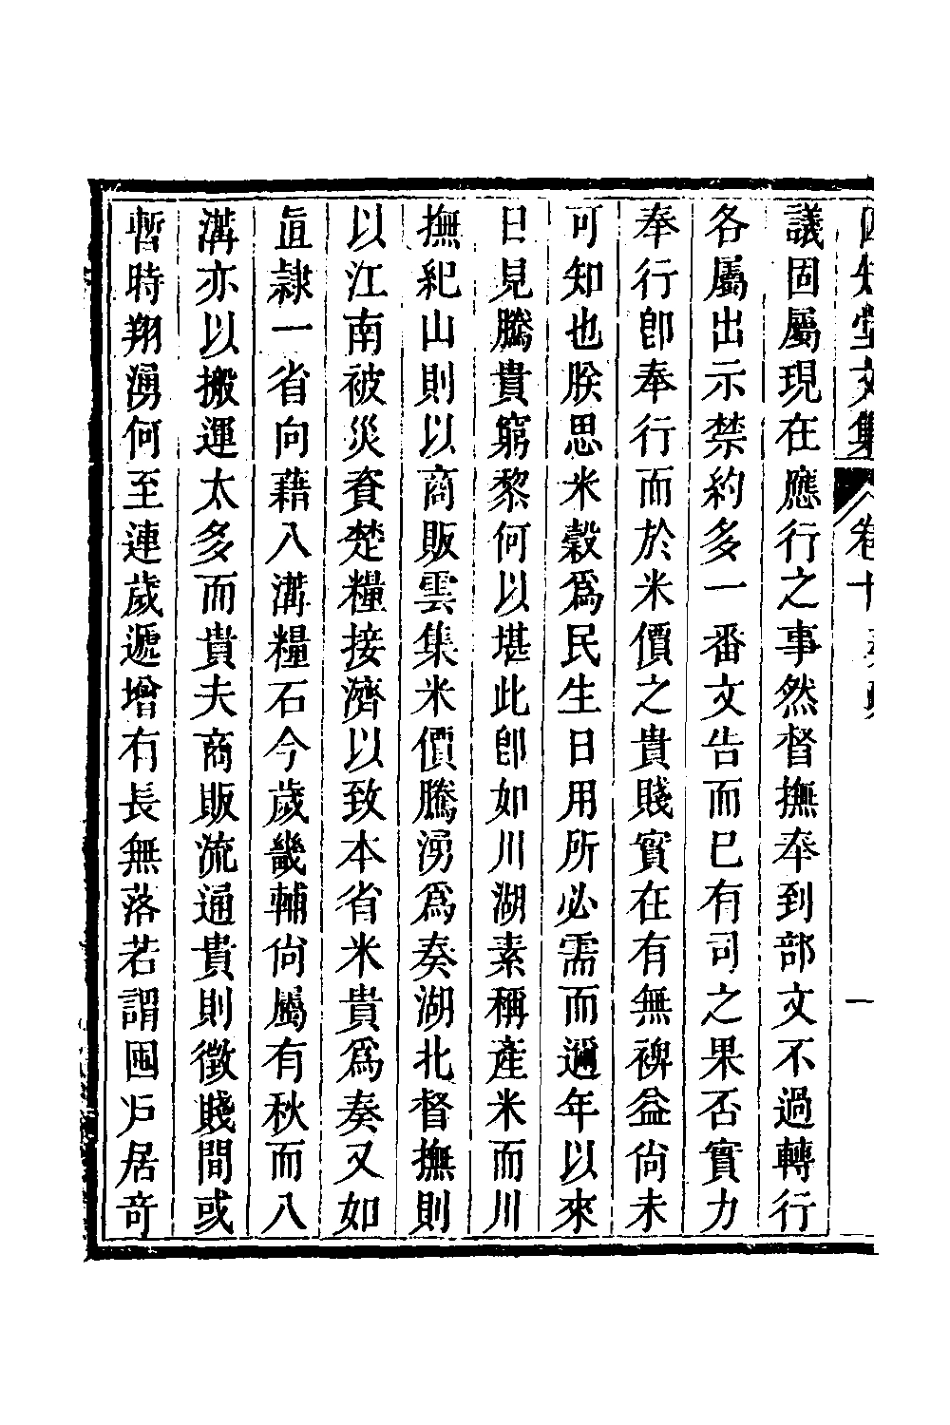 四知堂文集 卷十 奏疏 一
議固屬現在應行之事然督撫奉到部文不過轉行
各屬出示禁約多一番文告而已有司之果否實力
奉行卽奉行而於米價之貴賤實在有無裨益尙未
可知也朕思米穀爲民生日用所必需而邇年以來
日見騰貴窮黎何以堪此卽如川湖素稱產米而川
撫紀山則以商販雲集米價騰湧爲奏湖北督撫則
以江南被災資楚糧接濟以致本省米貴爲奏又如
直隷一省向藉八溝糧石今歲畿輔尙屬有秋而八
溝亦以搬運太多而貴夫商販流通貴則徵賤間或
暫時翔湧何至連歲遞增有長無落若謂囤戶居奇